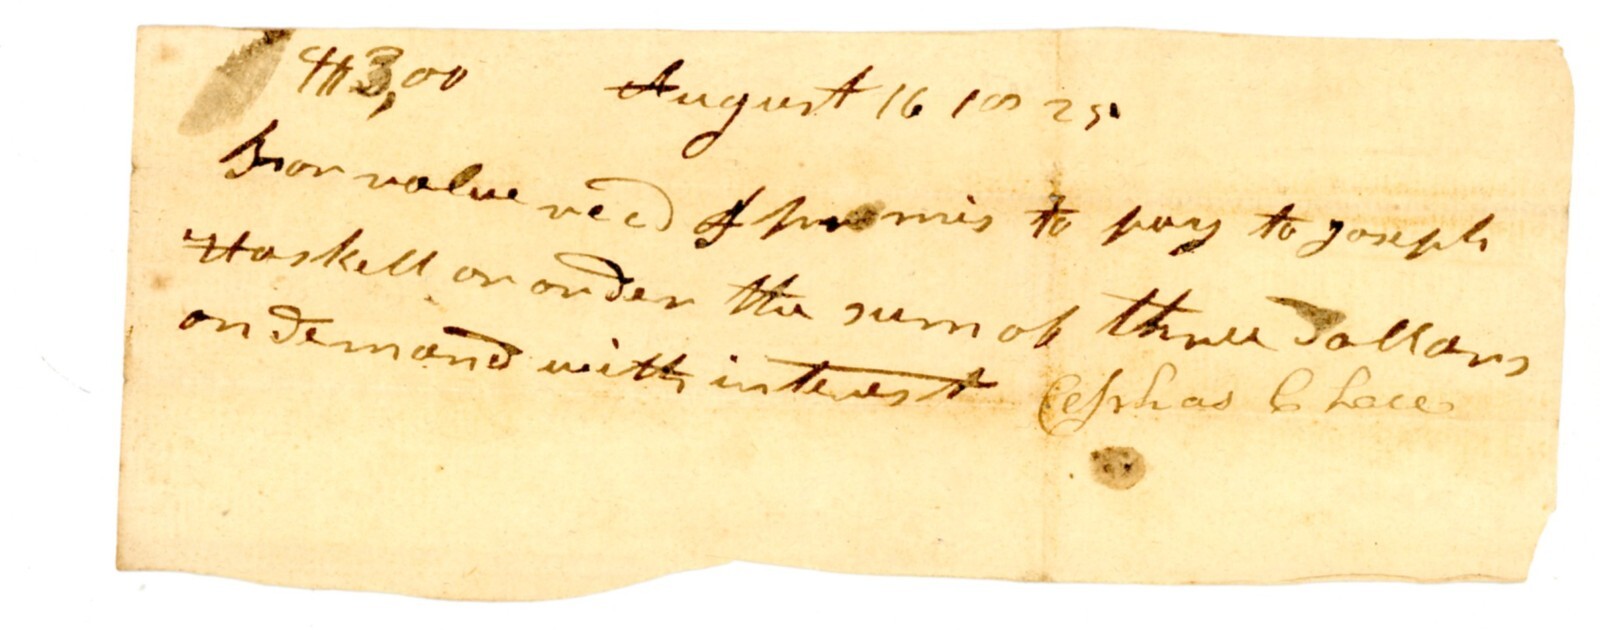 $3,00 August 16 1825
For value recd I promis to pay to Joseph
Haskell or order the sum of three dollars
on demand with interest Cephas Chace